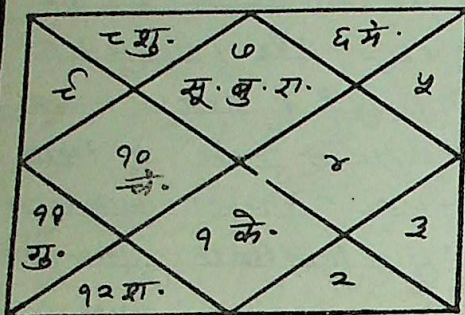 ८ शु.
७
सू. बु. रा.
६ मं.
९
५
१०
चं.
४
११
गु.
१ के.
३
१२ श.
२